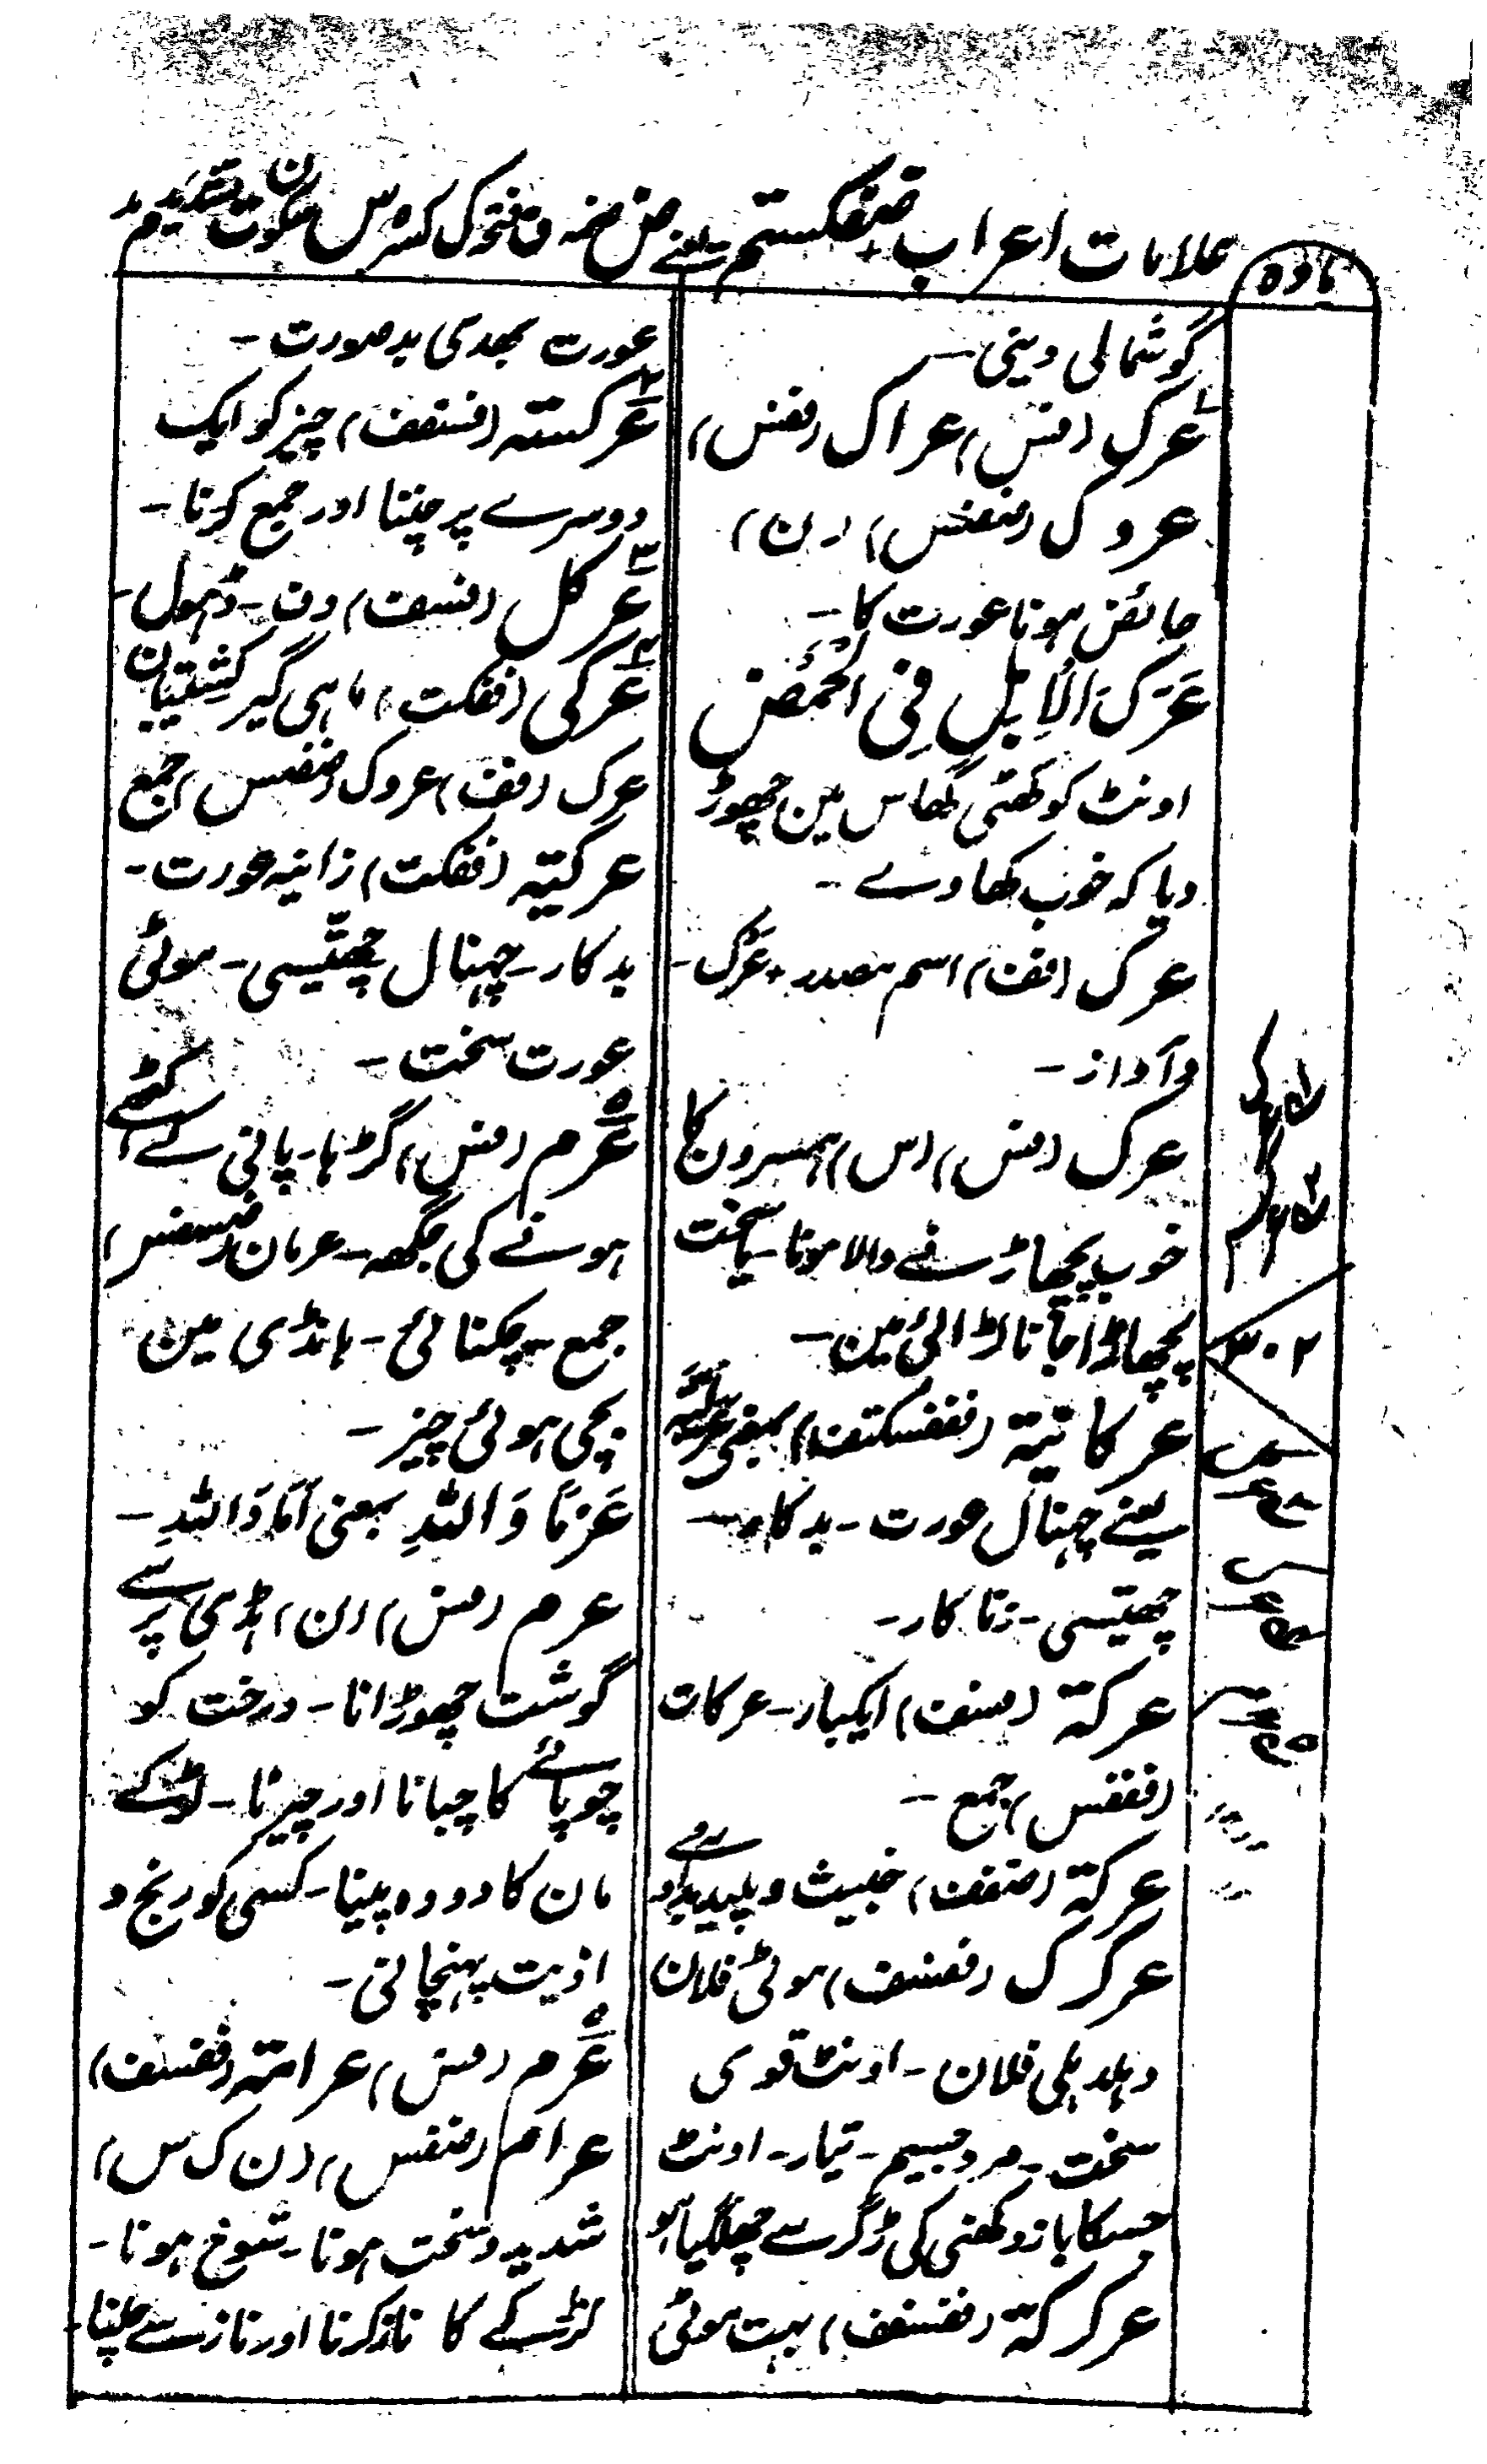 علامات اعراب ضفکستم یعنے ض ضمہ ف فتحہ ک کسرہ س سکون ت تشدید م مد
مادہ
گوشمالی دینی-
عرک (فس) عراک (ففس)
عروک (ضضس) (ن)
حائض ہونا عورت کا-
عَرَکَ الْاِبِلِ فِی الْحَمْضِ
اونٹ کو کھٹی گھاس مین چھوڑ
دیا کہ خوب کھا وے-
عرک (فف) اسم مصدر + عَرَک-
وآواز-
عرک (فس) (س) ہمسرون کا
خوب پچھاڑنے والا ہونا- سخت
پچھاڑا جانا لڑائی مین-
عرکانیۃ (ففسکتف) بمعنی
یعنے چھنال عورت- بدکار-
چھتیسی- زنا کار-
عرکۃ (فسف) ایکبار- عرکات
(ففس) جمع-
عرکۃ (ضفف) خبیث وپلید
عرکرک (ففسف) موٹی فلان
وہلد ہلی فلان- اونٹ قوی
سخت- مرد جسیم- تیار- اونٹ
جسکا بازو کھنی کی رگڑ سے چھلگیا ہو
عرکرکۃ (ففسفف) بہت موٹی
۳۰۲
عورت بھدی بدصورت-
عرکستہ (فسففف) چیز کو ایک
دوسرے پر چننا اور جمع کرنا-
عرکل (فسف) دف- ڈھول-
عرکی (ففکت) ماہی گیر کشتیبان
عرک (فف) عروک (ضضس) جمع
عرکیۃ (ففکت) زانیہ عورت-
بدکار- چھنال چھتیسی- موٹی
عورت سخت-
عرم (فس) گڑہا- پانی کے اکٹھے
ہونے کی جگھہ- عرمان (ضسفس)
جمع- چکنائی- ہانڈی مین
بچی ہوئی چیز-
عَرْمًا وَاللّٰہِ بمعنی اَمَا وَاللّٰہِ-
عرم (فس) (ن) ہڈی پر سے
گوشت چھوڑانا- درخت کو
چوپائے کا چبانا اور چیرنا- لڑکے
مان کا دودہ پینا- کسی کو رنج و
اذیت پہنچانی-
عرم (فس) عرامتہ (ففسف)
عرام (ضفس) (ن ک س)
شدید وسخت ہونا- شوخ ہونا-
لڑکے کا ناز کرنا اور ناز سے چلنا-